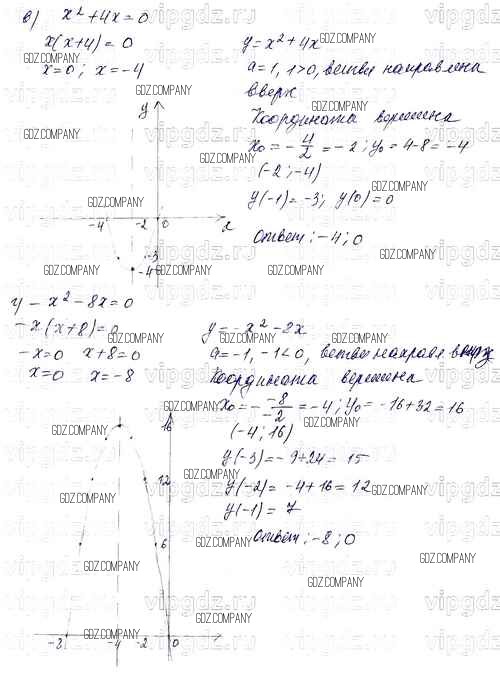 в) x² + 4x = 0
x(x+4) = 0
x=0; x=-4
y = x² + 4x
a=1, 1>0, ветви направлены
вверх
Координата вершина
x₀ = -4/2 = -2; y₀ = 4-8 = -4
(-2; -4)
y(-1) = -3; y(0) = 0
Ответ: -4; 0
y
-4 -2 0 x
-3
-4
г) - x² - 8x = 0
-x(x+8) = 0
-x=0 x+8=0
x=0 x=-8
y = -x² - 8x
a=-1, -1<0, ветви направл вниз
Координата вершина
x₀ = - -8/-2 = -4; y₀ = -16+32 = 16
(-4; 16)
y(-3) = -9+24 = 15
y(-2) = -4+16 = 12
y(-1) = 7
Ответ: -8; 0
16
12
6
-8 -4 -2 0
GDZ.COMPANY
vipgdz.ru